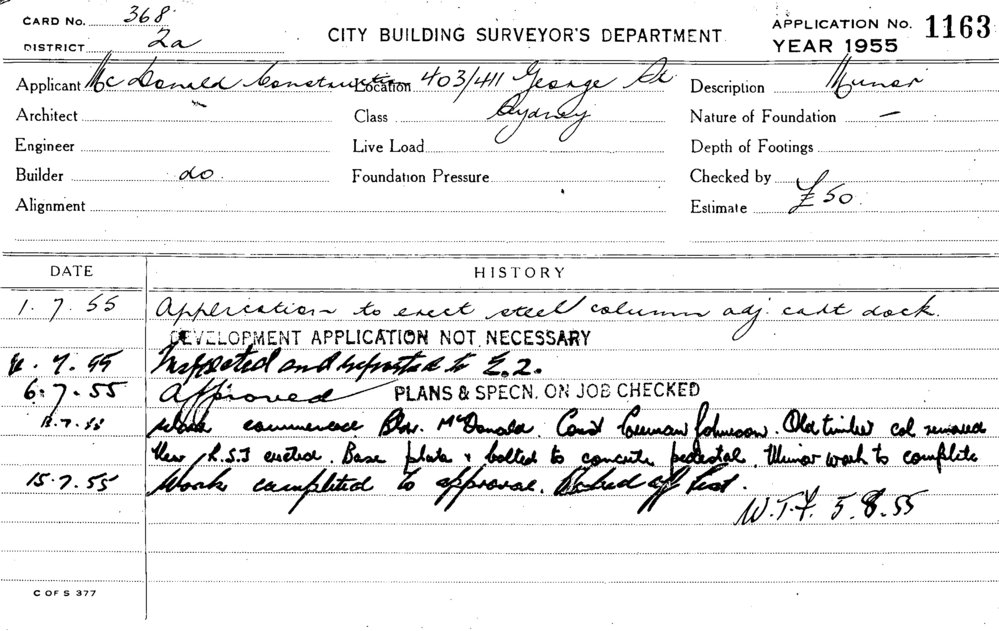 CARD No. 368
DISTRICT 2a
CITY BUILDING SURVEYOR'S DEPARTMENT
APPLICATION No. 1163
YEAR 1955
Applicant McDonald Construction Location 403/411 George St Description Minor
Architect Class Sydney Nature of Foundation —
Engineer Live Load Depth of Footings
Builder do Foundation Pressure Checked by
Alignment Estimate £50
DATE HISTORY
1.7.55 Application to erect steel column adj cart dock.
DEVELOPMENT APPLICATION NOT NECESSARY
7.55 Inspected and reported to E.2.
6.7.55 Approved PLANS & SPECN. ON JOB CHECKED
7.55 Work commence Bldr. McDonald. Const Foreman Johnson. Old timber col removed
New R.S.J erected. Base plate & bolted to concrete pedestal. Minor work to complete
15.7.55 Work completed to approval. off list.
W.T.F. 5.8.55
C OF S 377